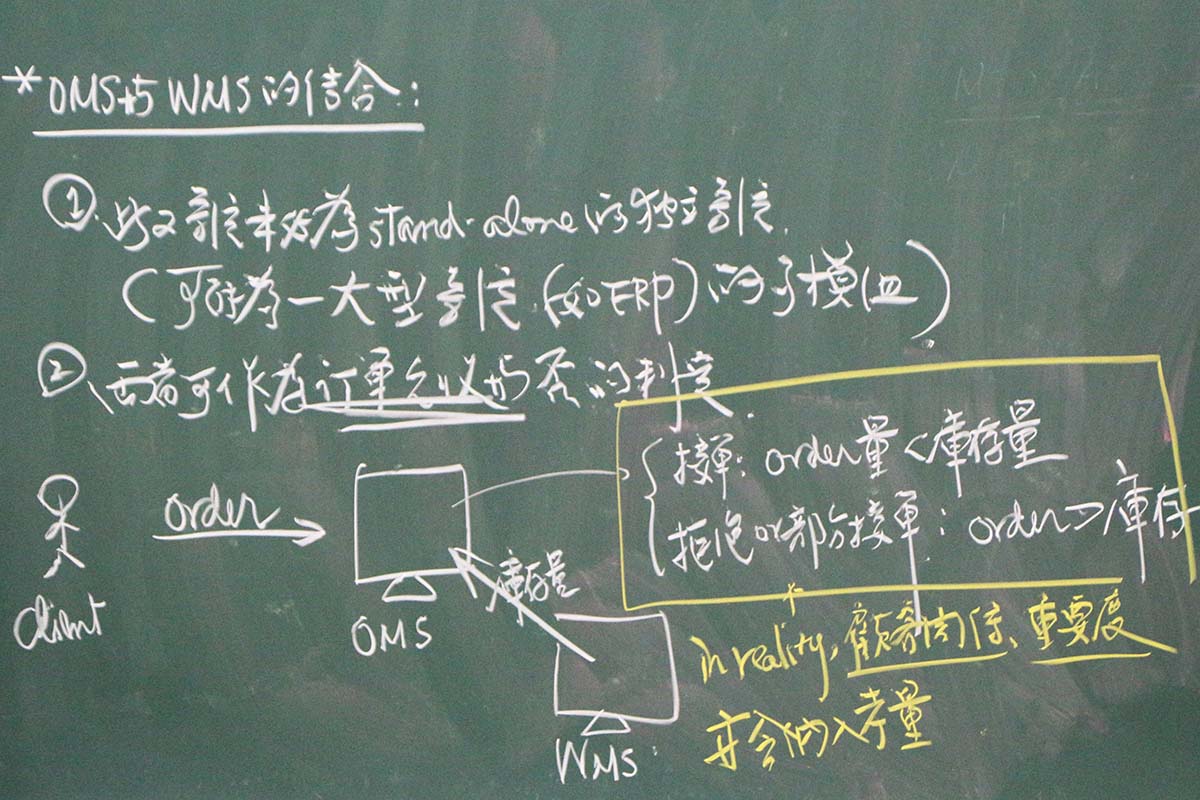 * OMS與WMS的結合:
① 此2系統未必為stand-alone的獨立系統.
(可能為一大型系統(如ERP)的子模組)
②、兩者可作為訂單允收與否的判定
接單: order量<庫存量
拒絕or部分接單: order>庫存
order
庫存量
Client
OMS
WMS
in reality, 顧客關係、重要度
亦會納入考量